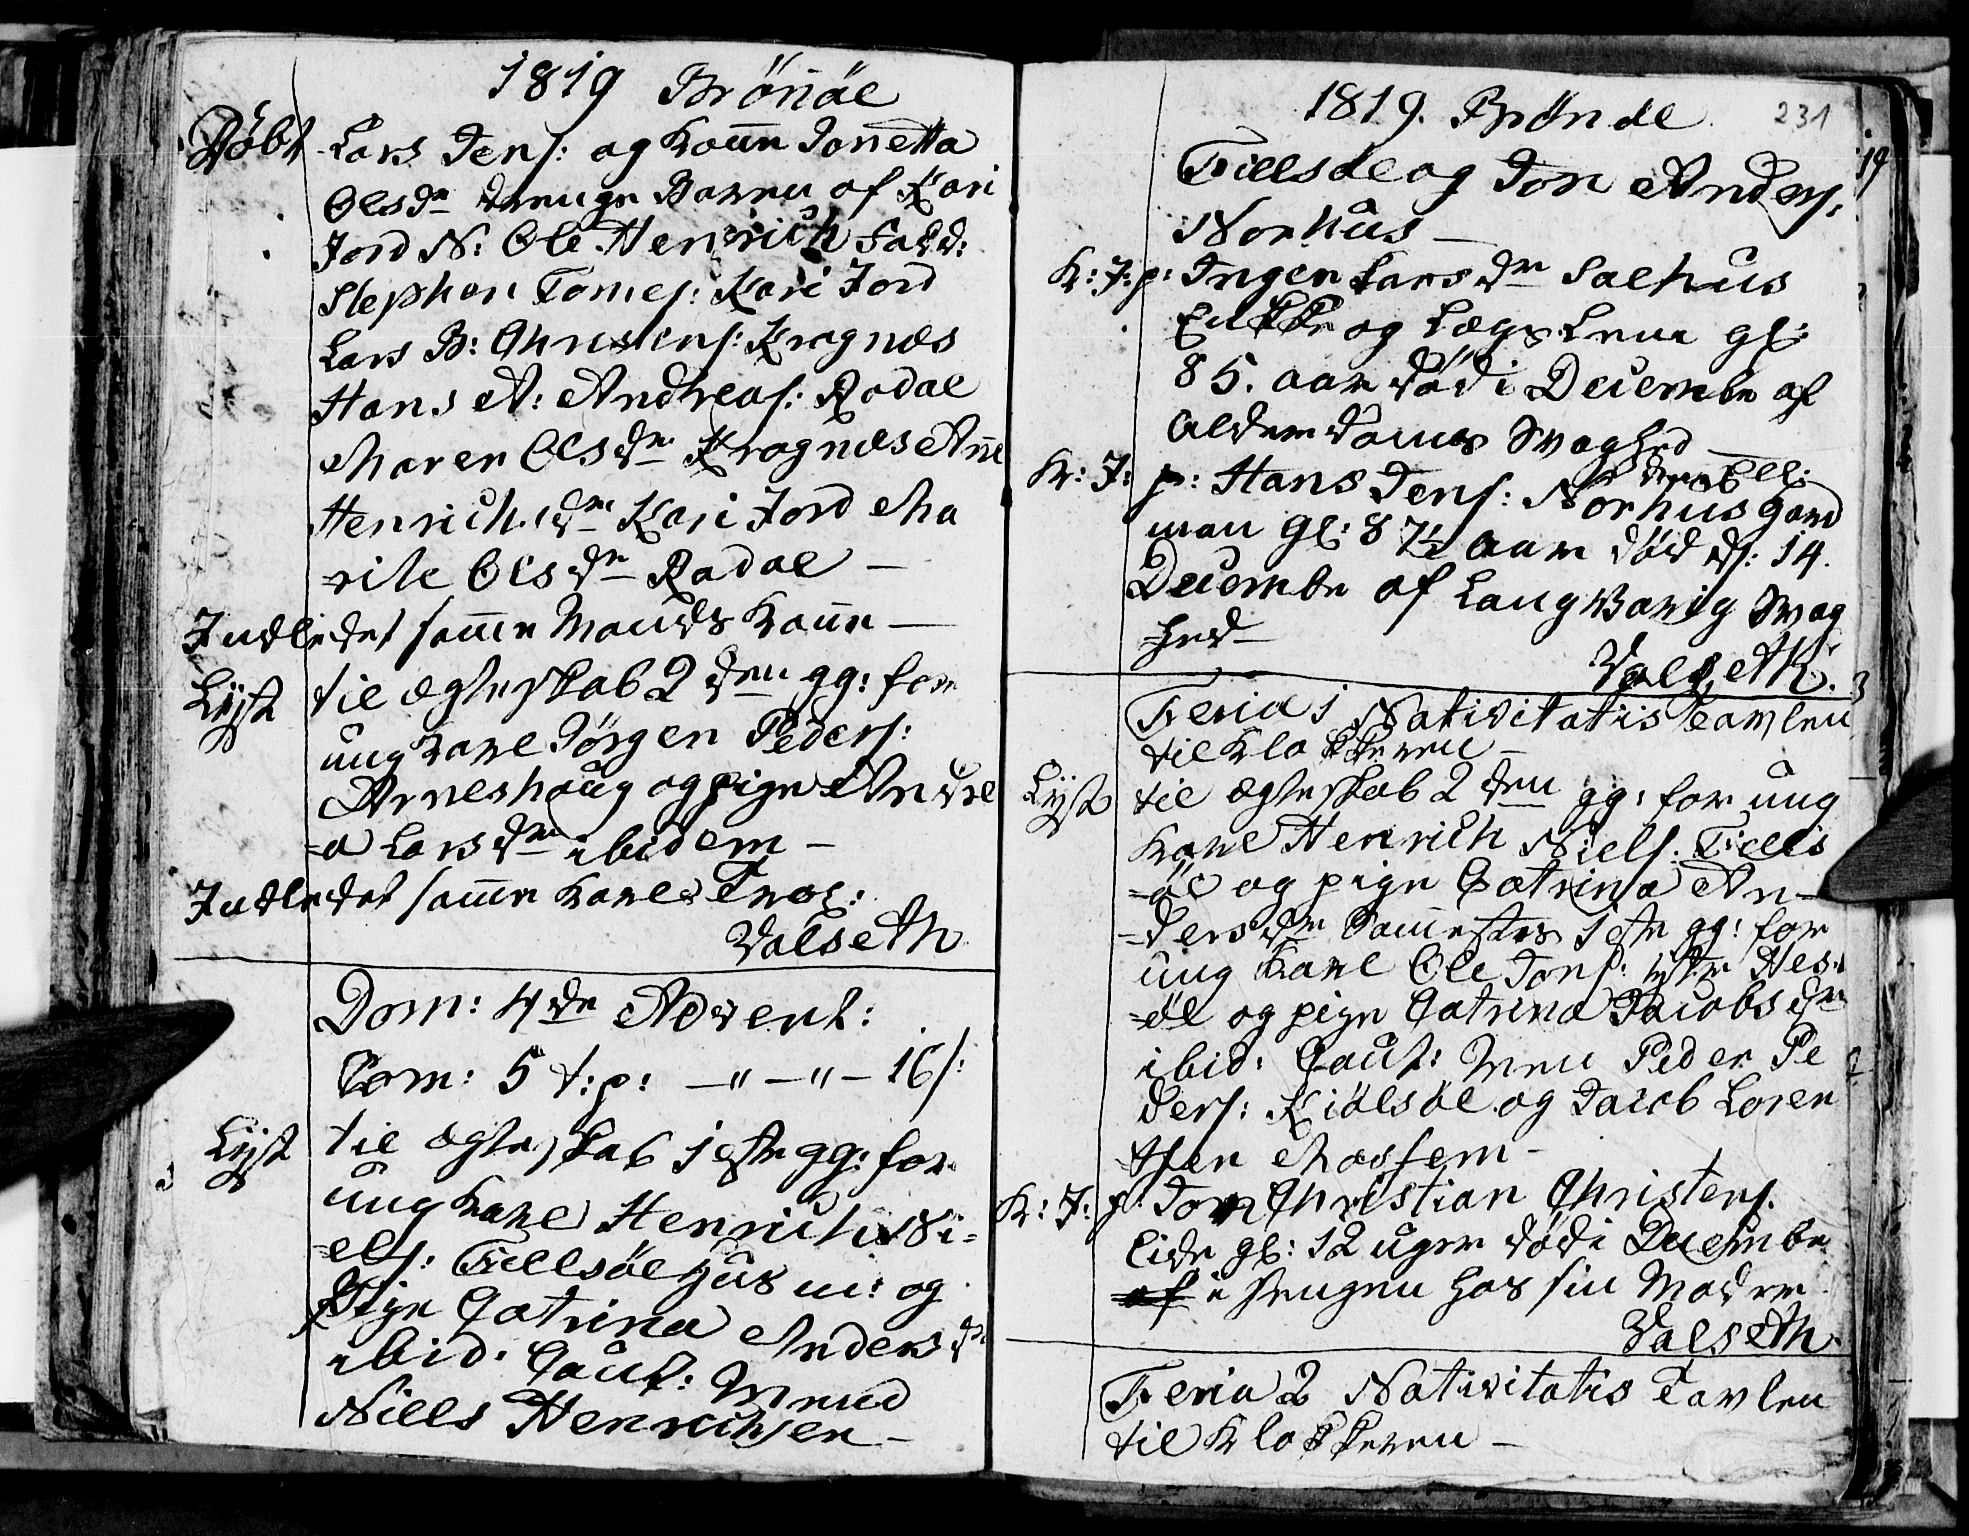 1819 Brönöe
Döbt Lars Jens: og Konne Jonetta
Olsdr drenge Barn af Kari
Jord N: Ole Henrich Fadd:
Stephen Tomes: Kari Jord
Lars B: Christens: Kragnæs
Hans A: Andreas: Rodal
Maren Olsdr Kragnæs Ane
Henrichsdr Kari Jord Ma
rite Olsdr Rodal —
Indledet samme Mands Konne —
Lyst til ægteskab 2den gg: for
ung karl Jörgen Peders:
Arneshaug og pige Andre
=a Larsdr ibidem —
Indledet samme karls
Valseth
Dom: 4de Advent:
Com: 5 t: p: — " — " — 16 s:
Lyst til ægteskab 1ste gg: for
ung karl Henrich Ni=
=els: Tillsöe Huus m: og
Pige Catrina Andersdr
ibid. Caut: Mend
Niels Henrichsen —
1819. Brönöe 231
Tillsöe og Jon Anders:
Norhus —
K: J: p: Ingen Larsdr Salhus
Enkke og Lægs Lem gl:
85. aar död i Decembr af
Alderdoms Svaghed —
K: J: p: Hans Jens: Norhus Gaard
man gl: 87½ aar död d: 14.
Decembr af Langvarig Svag
hed —
Valseth.
Feria 1 Nativitatis Tavlen
til Klokkeren —
Lyst til ægteskab 2den gg: for ung
Karl Henrich Niels: Tills
=öe og pige Catrina An=
=dersdr Sammestes 1ste gg: for
ung Karl Ole Jons: Hes=
=öe og pige Catrina Jacobsdr
ibid: Caut: Men Peder Pe
ders: Kiölsöe og Jacob Loren
tsen Mosfem —
K: J: p: Jon Christian Christens:
Lide gl: 12 uger död i Decembr
af i Sengen hos sin Moder
Valseth.
Feria 2 Nativitatis Tavlen
til Klokkeren —